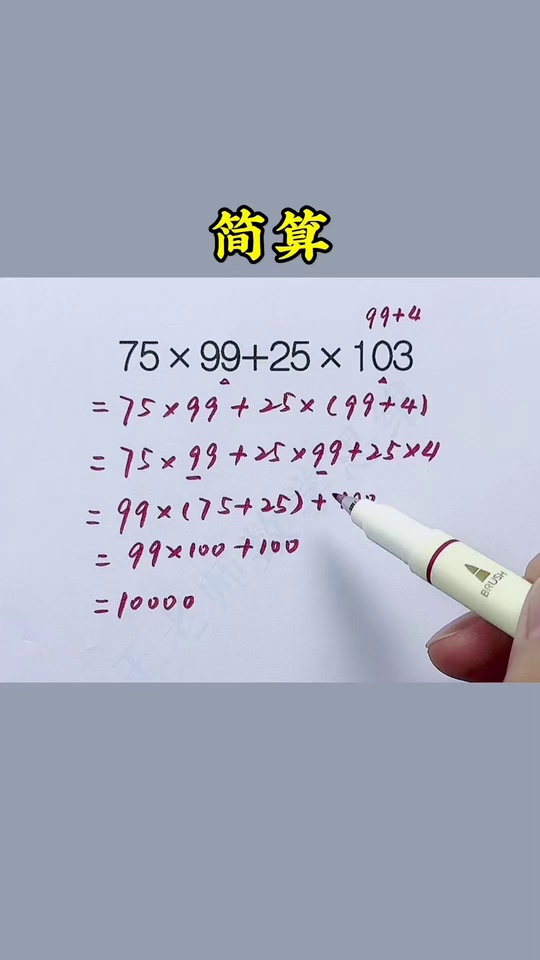 简算
99+4
75×99+25×103
=75×99+25×(99+4)
=75×99+25×99+25×4
=99×(75+25)+
=99×100+100
=10000
BRUSH